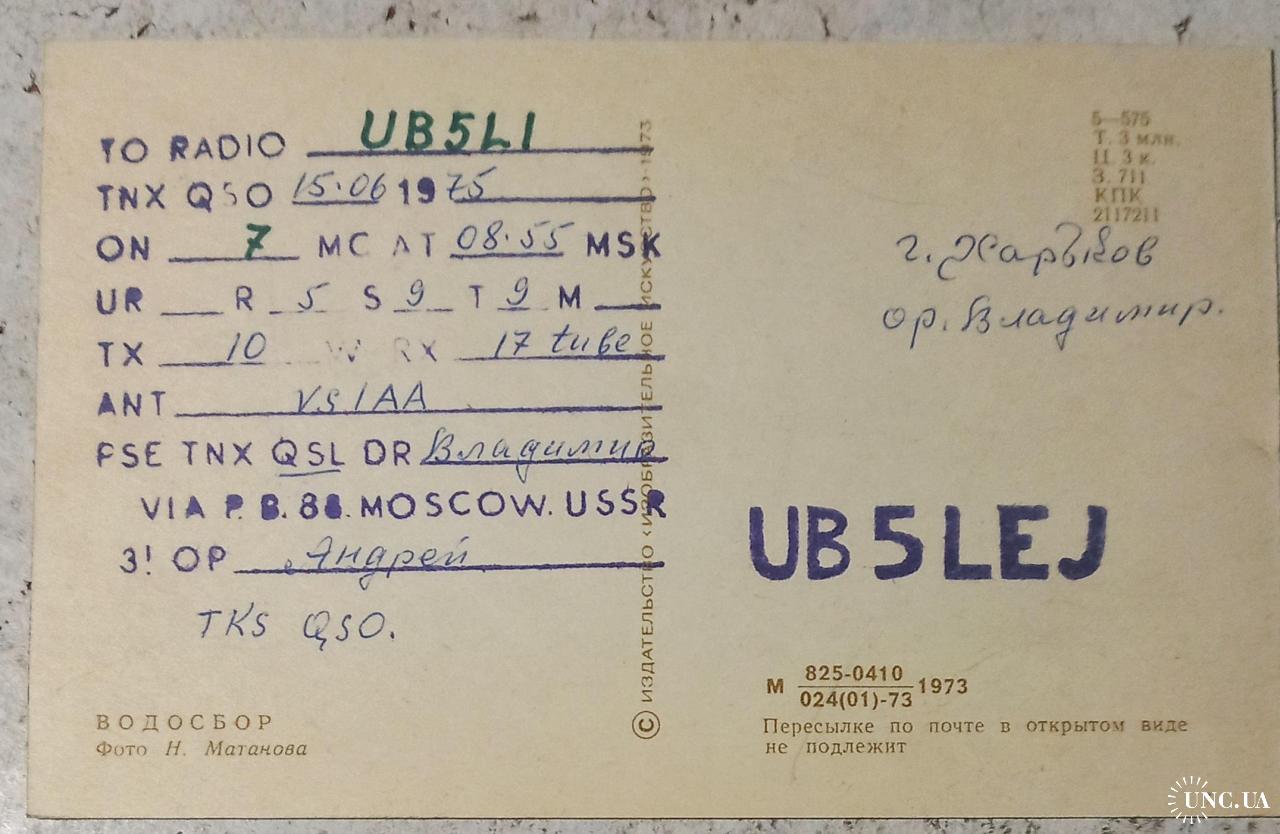 TO RADIO UB5LI
TNX QSO 15.06 1975
ON 7 MC AT 08.55 MSK
UR R 5 S 9 T 9 M
TX 10 W RX 17 tube
ANT VS1AA
PSE TNX QSL DR Владимир
VIA P. B. 88. MOSCOW. USSR
73! OP Андрей
TKS QSO.
ВОДОСБОР
Фото Н. Матанова
© ИЗДАТЕЛЬСТВО «ИЗОБРАЗИТЕЛЬНОЕ ИСКУССТВО» 1973
5—575
Т. 3 млн.
Ц. 3 к.
З. 711
КПК
2117211
г. Харьков
ор. Владимир.
UB5LEJ
М 825-0410
024(01)-73 1973
Пересылке по почте в открытом виде
не подлежит
UNC.UA